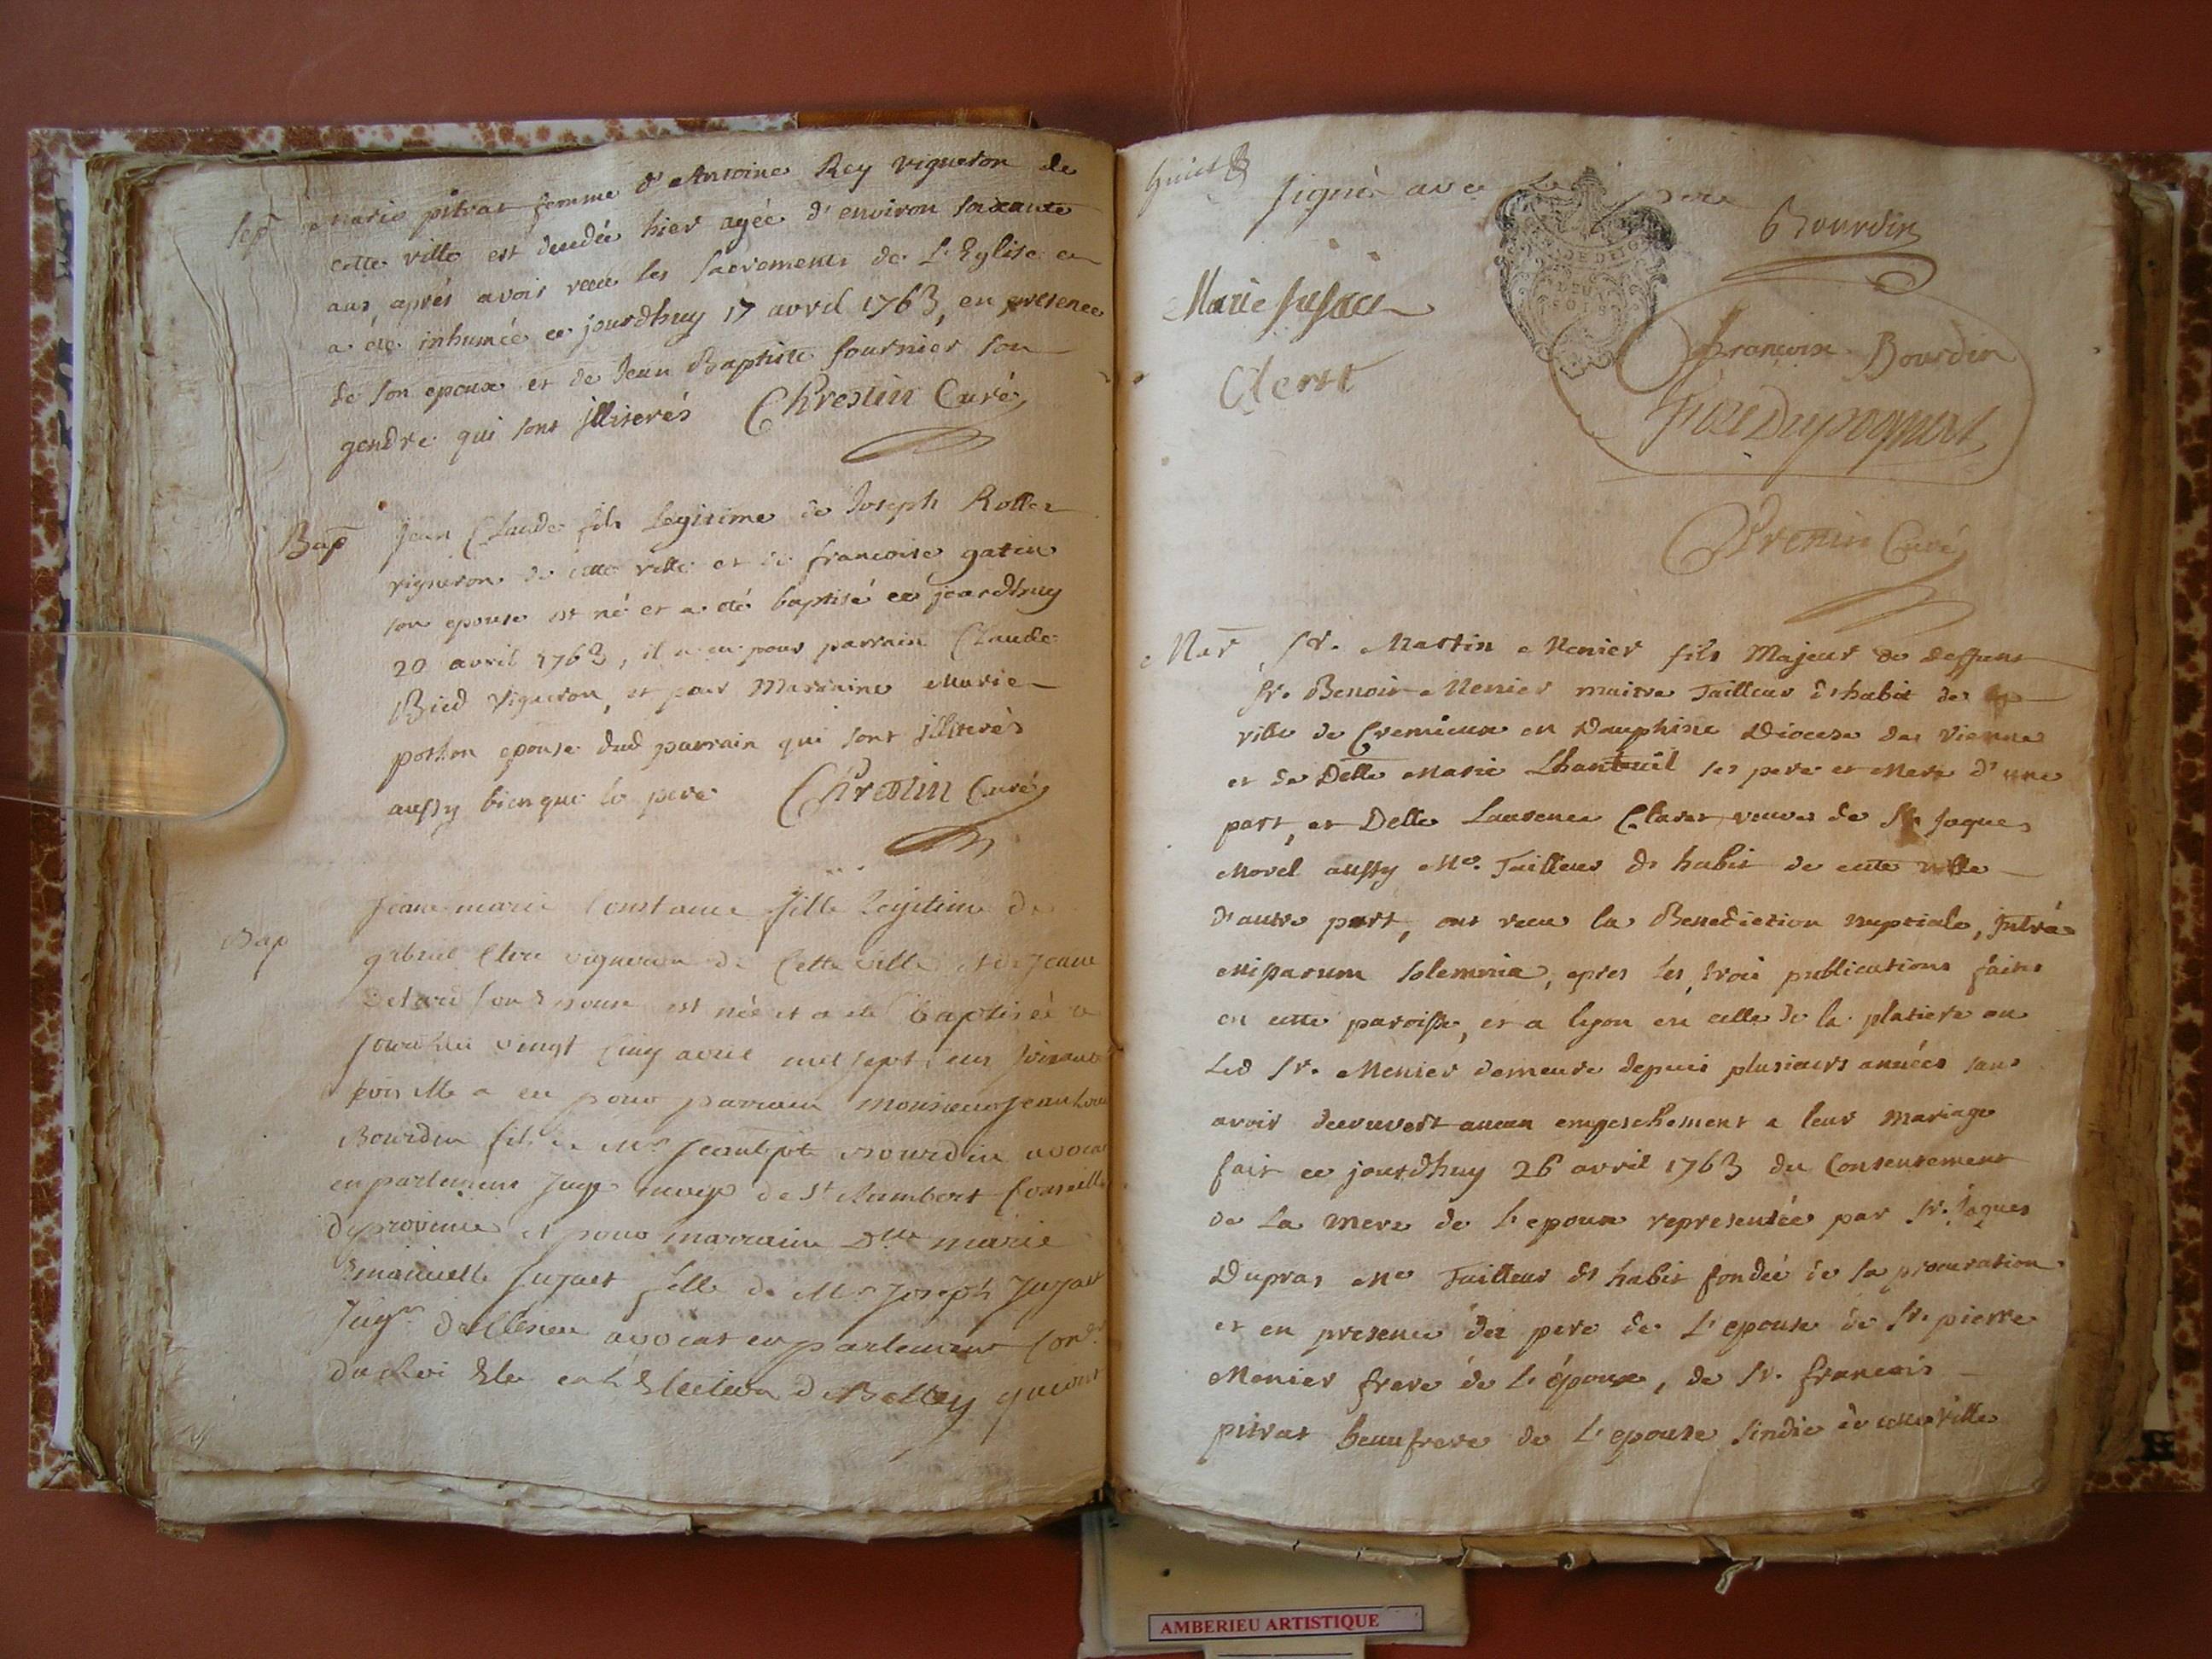 Sep
Marie pitrat femme d'Antoine Rey vigneron de
cette ville est decedée hier agée d'environ soixante
ans, aprés avoir reçeu les sacrements de L'Eglise et
a été inhumée ce jourdhuy 17 avril 1763, en presence
de son epoux et de Jean Baptiste fournier son
gendre qui sont illiterés Chrestin Curé
Bap
Jean Claude fils Legitime de Joseph Rollet
vigneron de cette ville et de francoise gatin
son epouse est né et a été baptisé ce jourdhuy
20 avril 1763, il a eu pour parrain Claude
Bied vigneron, et pour Marraine Marie
pothon epouse dud parrain qui sont illiterés
aussy bien que le pere Chrestin Curé
Bap
Jeanne marie Constance fille Legitime de
gabriel vigneron de Cette ville et de Jeanne
son Epouse est née et a été baptisée ce
jourdhui vingt cinq avril mil sept cens soixante
trois elle a eu pour parrain Monsieur Jean
Bourdin fils de Mr Jean bpte Bourdin avocat
en parlement Juge de St Rambert Conseiller
de province et pour marraine Dlle marie
Jujact fille de Mr Joseph Jujact
avocat en parlement Con.er
du Roi Elu en L'Election de Belley qui ont
signé avec Le pere
Bourdin
DEUX
SOLS
Marie Jujact
francoise Bourdin
Clerct
Chrestin Curé
Mar
Sr. Martin Menier fils Majeur de deffunt
Sr. Benoit Menier maitre Tailleur d'habit de la
ville de Cremieux en Dauphiné Diocese de Vienne
et de Delle Marie Lhanteuil ses pere et Mere d'une
part, et Delle Laurence Claret veuve de Sr Jaques
Morel aussy Me. Tailleur d'habit de cette ville
d'autre part, ont receu la Benediction nuptiale, Intra
Missarum solemnia, apres les trois publications faites
en cette paroisse, et a lyon en celle de la platiere ou
Led Sr. Menier demeure depuis plusieurs années sans
avoir decouvert aucun empeschement a leur Mariage
fait ce jourdhuy 26 avril 1763 du Consentement
de La mere de L'epoux representée par Sr. Jaques
Dupras Me Tailleur d'habit fondé de sa procuration
et en presence du pere de L'epouse de Sr. pierre
Menier frere de L'époux, de Sr. francois
pitrat beaufrere de L'epouse sindic de cette ville
AMBERIEU ARTISTIQUE